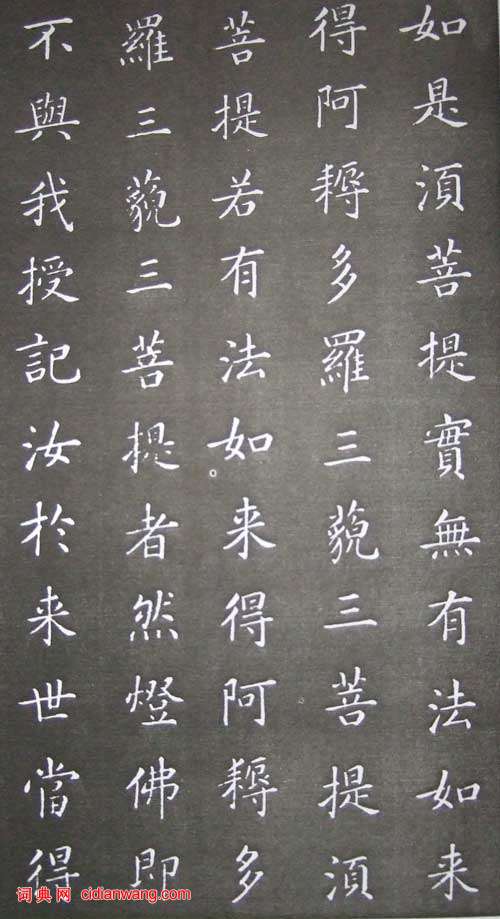 如是須菩提實無有法如来
得阿耨多羅三藐三菩提須
菩提若有法如来得阿耨多
羅三藐三菩提者然燈佛即
不與我授記汝於来世當得
词典网 cidianwang.com